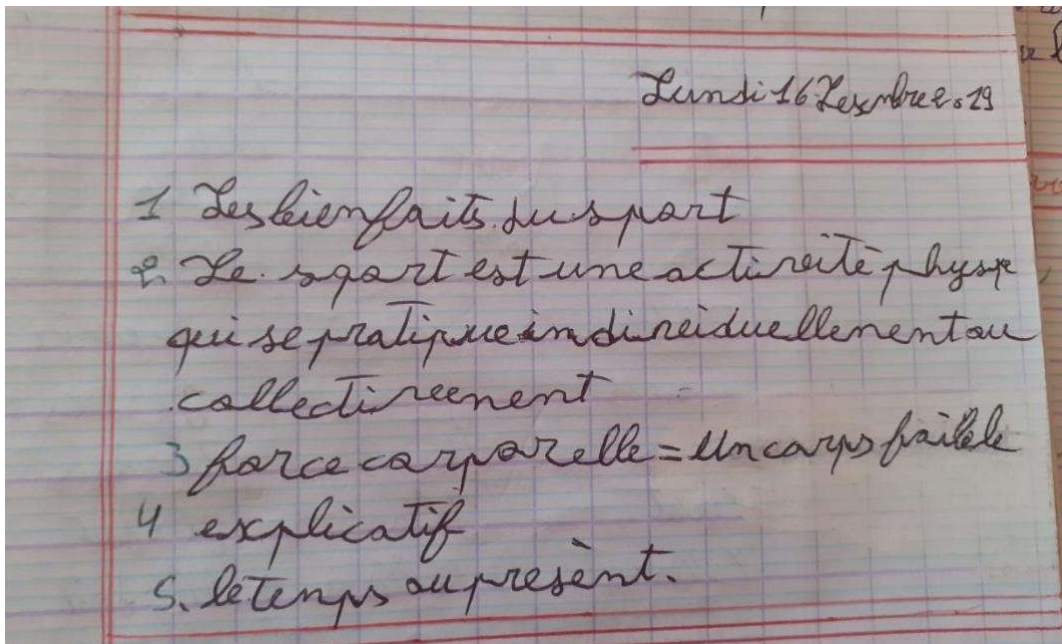 Lundi 16 Desembre 2019
1 Les bienfaits du sport
2. Le sport est une activeité physqe
qui se pratique indiveiduellement ou
collectiveement
3 force corporelle = un corps faible
4 explicatif
5. le temps au présent.